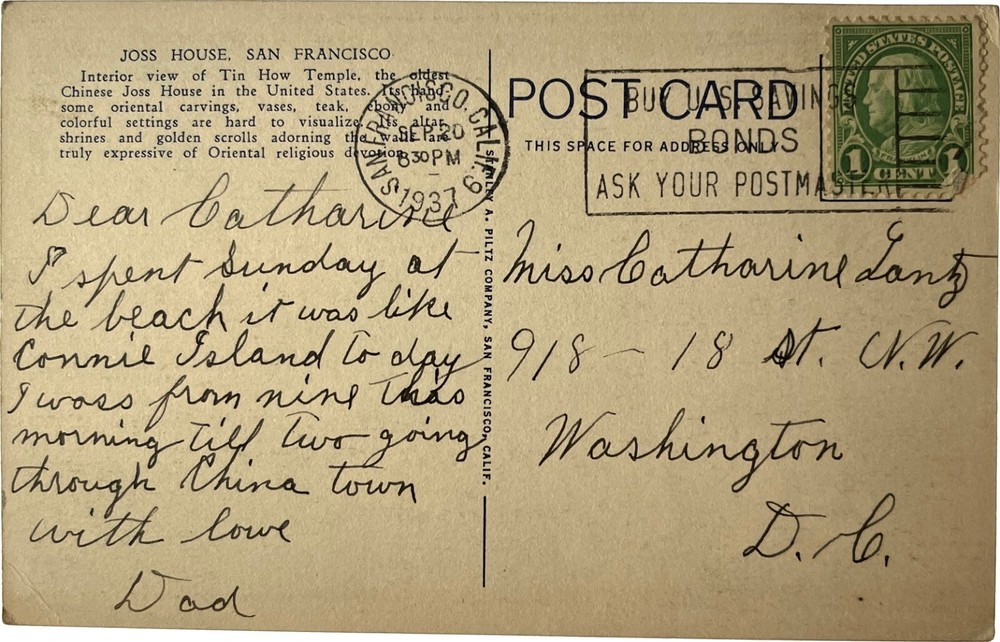 JOSS HOUSE, SAN FRANCISCO
Interior view of Tin How Temple, the oldest
Chinese Joss House in the United States. Its hand-
some oriental carvings, vases, teak, ebony and
colorful settings are hard to visualize. Its altar
shrines and golden scrolls adorning the walls are
truly expressive of Oriental religious devotion.
SAN FRANCISCO, CALIF. 9
SEP 20
8 30 PM
1937
POST CARD
THIS SPACE FOR ADDRESS ONLY
BUY U.S. SAVINGS
BONDS
ASK YOUR POSTMASTER
UNITED STATES POSTAGE
FRANKLIN
1 CENT 1
STANLEY A. PILTZ COMPANY, SAN FRANCISCO, CALIF.
Dear Catharine
I spent Sunday at
the beach it was like
Connie Island to day
I wass from nine this
morning till two going
through China town
with love
Dad
Miss Catharine Lantz
918 - 18 St. N.W.
Washington
D. C.